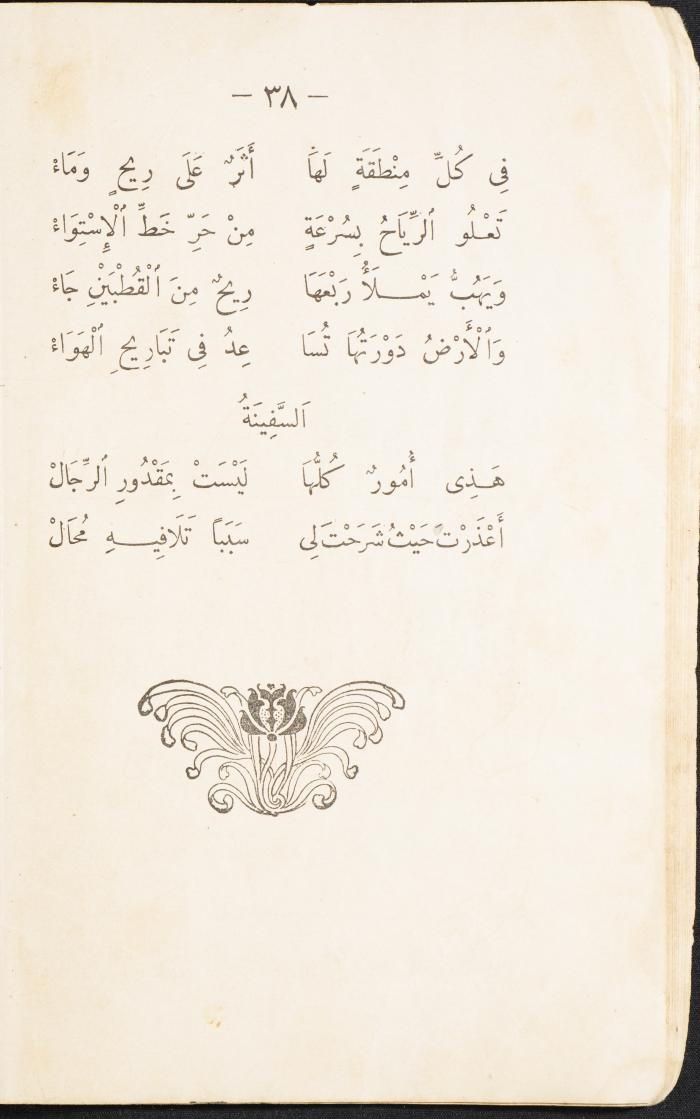 — ٣٨ —
فِى كُلِّ مِنْطَقَةٍ لَهَا أَثَرٌ عَلَى رِيحٍ وَمَاءْ
تَعْلُو ٱلرِّيَاحُ بِسُرْعَةٍ مِنْ حَرِّ خَطِّ ٱلْإِسْتِوَاءْ
وَيَهُبُّ يَمْلَأُ رَبْعَهَا رِيحٌ مِنَ ٱلْقُطْبَيْنِ جَاءْ
وَٱلْأَرْضُ دَوْرَتُهَا تُسَا عِدُ فِى تَبَارِيحِ ٱلْهَوَاءْ
اَلسَّفِينَةُ
هَذِى أُمُورٌ كُلُّهَا لَيْسَتْ بِمَقْدُورِ ٱلرِّجَالْ
أَعْذَرْتَ حَيْثُ شَرَحْتَ لِى سَبَبًا تَلَافِيهِ مُحَالْ